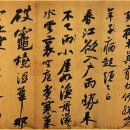 年子病起頭已白
春江欲入戶雨勢來
不已雨小屋如漁舟濛
濛水雲裏空庖煮寒菜
破竈燒濕葦那